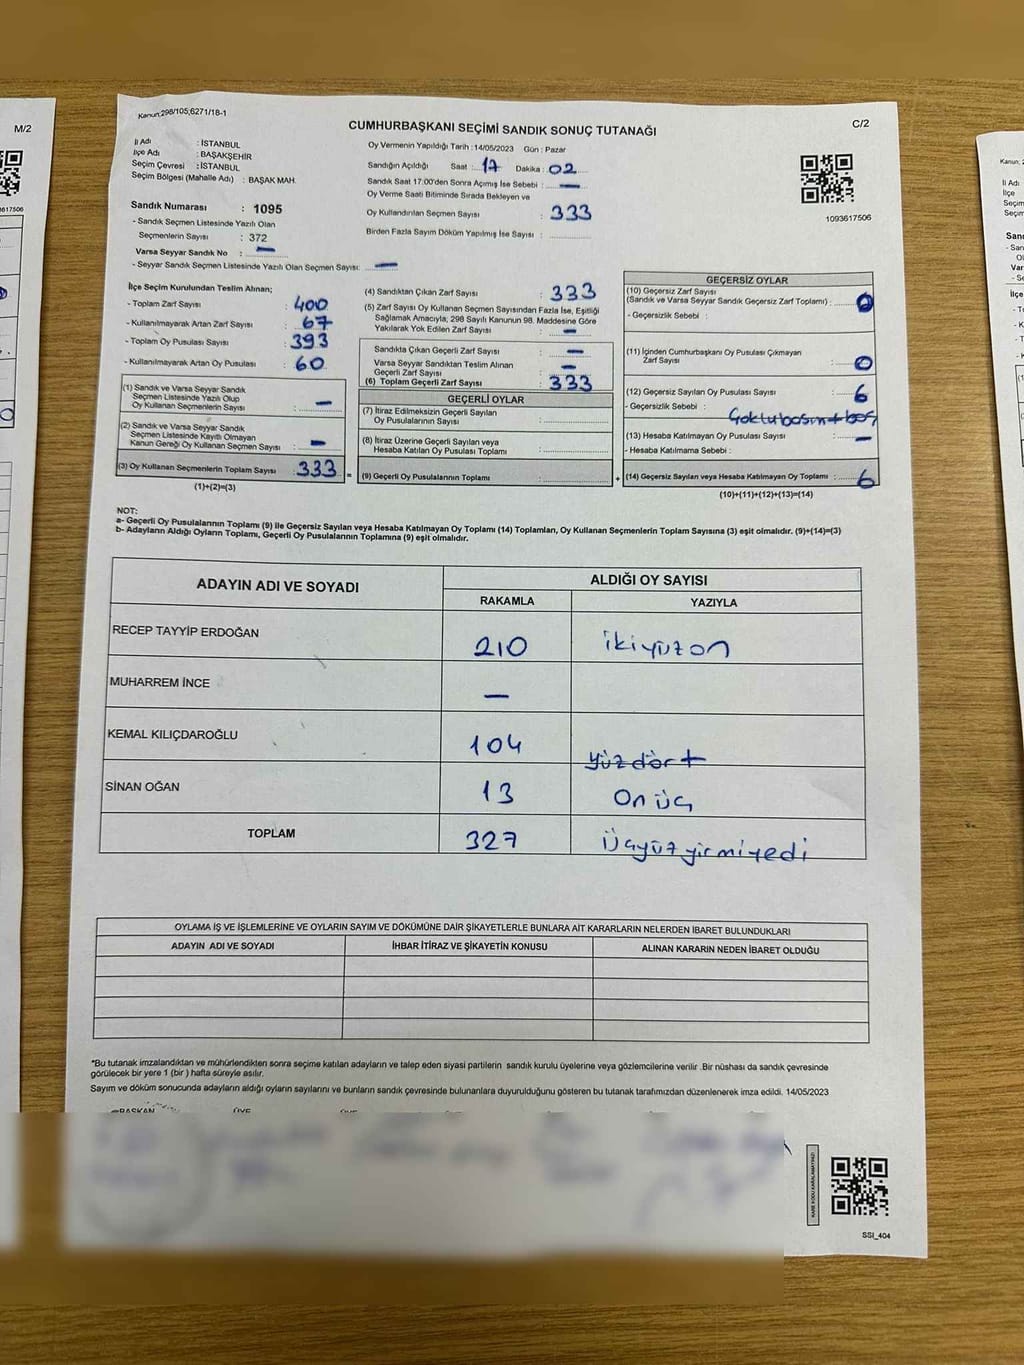 M/2
617506
Kanun;298/105;6271/18-1
C/2
CUMHURBAŞKANI SEÇİMİ SANDIK SONUÇ TUTANAĞI
İl Adı : İSTANBUL
İlçe Adı : BAŞAKŞEHİR
Seçim Çevresi : İSTANBUL
Seçim Bölgesi (Mahalle Adı) : BAŞAK MAH.
Sandık Numarası : 1095
- Sandık Seçmen Listesinde Yazılı Olan
Seçmenlerin Sayısı : 372
Varsa Seyyar Sandık No : —
- Seyyar Sandık Seçmen Listesinde Yazılı Olan Seçmen Sayısı: —
Oy Vermenin Yapıldığı Tarih :14/05/2023 Gün : Pazar
Sandığın Açıldığı Saat : 17 Dakika : 02
Sandık Saat 17:00'den Sonra Açımış İse Sebebi : —
Oy Verme Saati Bitiminde Sırada Bekleyen ve
Oy Kullandırılan Seçmen Sayısı : 333
Birden Fazla Sayım Döküm Yapılmış İse Sayısı :
1093617506
İlçe Seçim Kurulundan Teslim Alınan;
- Toplam Zarf Sayısı : 400
- Kullanılmayarak Artan Zarf Sayısı : 67
- Toplam Oy Pusulası Sayısı : 393
- Kullanılmayarak Artan Oy Pusulası : 60
(1) Sandık ve Varsa Seyyar Sandık
Seçmen Listesinde Yazılı Olup
Oy Kullanan Seçmenlerin Sayısı : —
(2) Sandık ve Varsa Seyyar Sandık
Seçmen Listesinde Kayıtlı Olmayan
Kanun Gereği Oy Kullanan Seçmen Sayısı : —
(3) Oy Kullanan Seçmenlerin Toplam Sayısı : 333 =
(1)+(2)=(3)
(4) Sandıktan Çıkan Zarf Sayısı : 333
(5) Zarf Sayısı Oy Kullanan Seçmen Sayısından Fazla İse, Eşitliği
Sağlamak Amacıyla; 298 Sayılı Kanunun 98. Maddesine Göre
Yakılarak Yok Edilen Zarf Sayısı : —
Sandıkta Çıkan Geçerli Zarf Sayısı : —
Varsa Seyyar Sandıktan Teslim Alınan
Geçerli Zarf Sayısı : —
(6) Toplam Geçerli Zarf Sayısı : 333
GEÇERLİ OYLAR
(7) İtiraz Edilmeksizin Geçerli Sayılan
Oy Pusulasının Sayısı :
(8) İtiraz Üzerine Geçerli Sayılan veya
Hesaba Katılan Oy Pusulası Toplamı :
(9) Geçerli Oy Pusulalarının Toplamı : +
GEÇERSİZ OYLAR
(10) Geçersiz Zarf Sayısı
(Sandık ve Varsa Seyyar Sandık Geçersiz Zarf Toplamı) : 0
- Geçersizlik Sebebi :
(11) İçinden Cumhurbaşkanı Oy Pusulası Çıkmayan
Zarf Sayısı : 0
(12) Geçersiz Sayılan Oy Pusulası Sayısı : 6
- Geçersizlik Sebebi :
(13) Hesaba Katılmayan Oy Pusulası Sayısı : —
- Hesaba Katılmama Sebebi :
(14) Geçersiz Sayılan veya Hesaba Katılmayan Oy Toplamı : 6
(10)+(11)+(12)+(13)=(14)
NOT:
a- Geçerli Oy Pusulalarının Toplamı (9) ile Geçersiz Sayılan veya Hesaba Katılmayan Oy Toplamı (14) Toplamları, Oy Kullanan Seçmenlerin Toplam Sayısına (3) eşit olmalıdır. (9)+(14)=(3)
b- Adayların Aldığı Oyların Toplamı, Geçerli Oy Pusulalarının Toplamına (9) eşit olmalıdır.
ADAYIN ADI VE SOYADI
ALDIĞI OY SAYISI
RAKAMLA YAZIYLA
RECEP TAYYİP ERDOĞAN 210 ikiyüzon
MUHARREM İNCE —
KEMAL KILIÇDAROĞLU 104 yüzdört
SİNAN OĞAN 13 Onüç
TOPLAM 327 Üçyüzyirmiyedi
OYLAMA İŞ VE İŞLEMLERİNE VE OYLARIN SAYIM VE DÖKÜMÜNE DAİR ŞİKAYETLERLE BUNLARA AİT KARARLARIN NELERDEN İBARET BULUNDUKLARI
ADAYIN ADI VE SOYADI İHBAR İTİRAZ VE ŞİKAYETİN KONUSU ALINAN KARARIN NEDEN İBARET OLDUĞU
*Bu tutanak imzalandıktan ve mühürlendikten sonra seçime katılan adayların ve talep eden siyasi partilerin sandık kurulu üyelerine veya gözlemcilerine verilir .Bir nüshası da sandık çevresinde
görülecek bir yere 1 (bir ) hafta süreyle asılır.
Sayım ve döküm sonucunda adayların aldığı oyların sayılarını ve bunların sandık çevresinde bulunanlara duyurulduğunu gösteren bu tutanak tarafımızdan düzenlenerek imza edildi. 14/05/2023
BAŞKAN ÜYE ÜYE
SSI_404